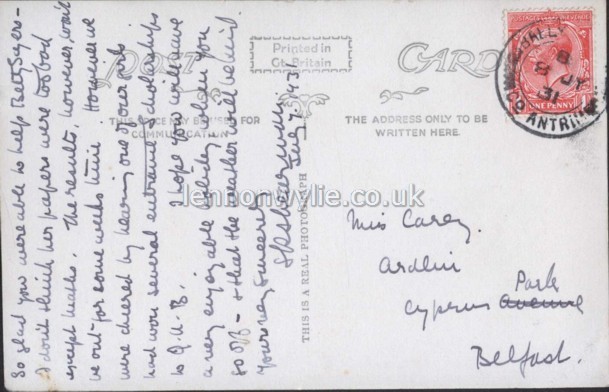 POST CARD
Printed in
Gt. Britain
THIS SPACE MAY BE USED FOR
COMMUNICATION
THE ADDRESS ONLY TO BE
WRITTEN HERE.
THIS IS A REAL PHOTOGRAPH
POSTAGE REVENUE
ONE PENNY
CO ANTRIM
8 JY
31
July 7. 1931
So glad you were able to help Betty Sigers -
I don't think her papers were too bad
except maths. The results, however, won't
be out for some weeks time. However we
were cheered by hearing one of our girls
had won several entrance Scholarships
to Q.U.B. I hope you will have
a very enjoyable holiday when you
go off - & that the weather will be kind.
Yours very sincerely
Miss Carey.
Ardlui
Park
Cyprus Avenue
Belfast.
lennonwylie.co.uk